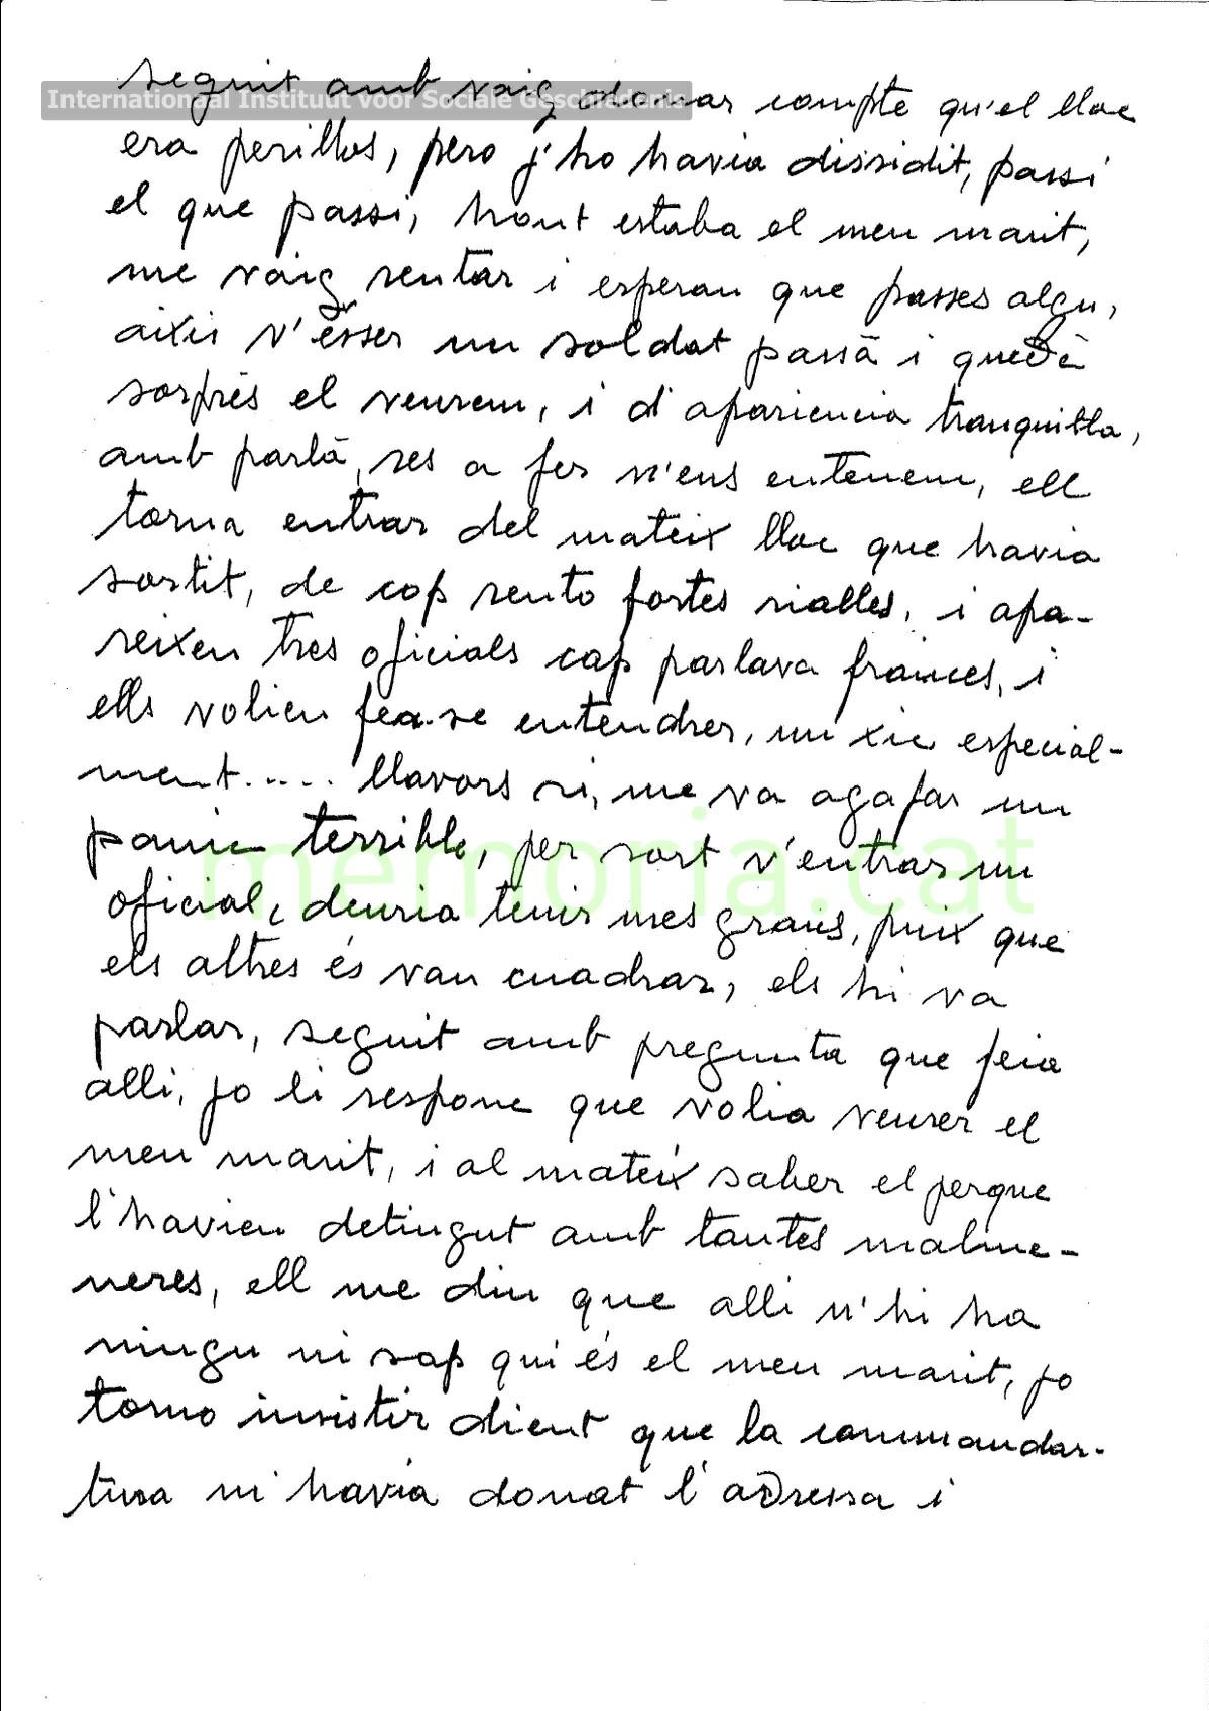 seguit amb vaig donar compte qu'el lloc
Internationaal Instituut voor Sociale Geschiedenis
era perillos, pero j'ho havia dissidit, passi
el que passi, hont estaba el meu marit,
me vaig sentar i esperan que passes algu,
aixis v'ésser un soldat passà i quedà
sorprès el veurem, i d'apariencia tranquilla,
amb parlà, res a fer n'ens entenem, ell
torna entrar del mateix lloc que havia
sortit, de cop sento fortes rialles, i apa-
reixen tres oficials cap parlava frances, i
ells volien fea-se entendrer, un xic especial-
ment..... llavors si, me va agafar un
panic terrible, per sort v'entrar un
memoria.cat
oficial, deuria tenir mes graus, puix que
els altres és van cuadrar, els hi va
parlar, seguit amb pregunta que feia
alli, jo li respone que volia veurer el
meu marit, i al mateix saber el perque
l'havien detingut amb tantes malme-
neres, ell me diu que alli n'hi ha
ningu ni sap qui és el meu marit, jo
torno insistir dient que la commandar-
tura m'havia donat l'adressa i